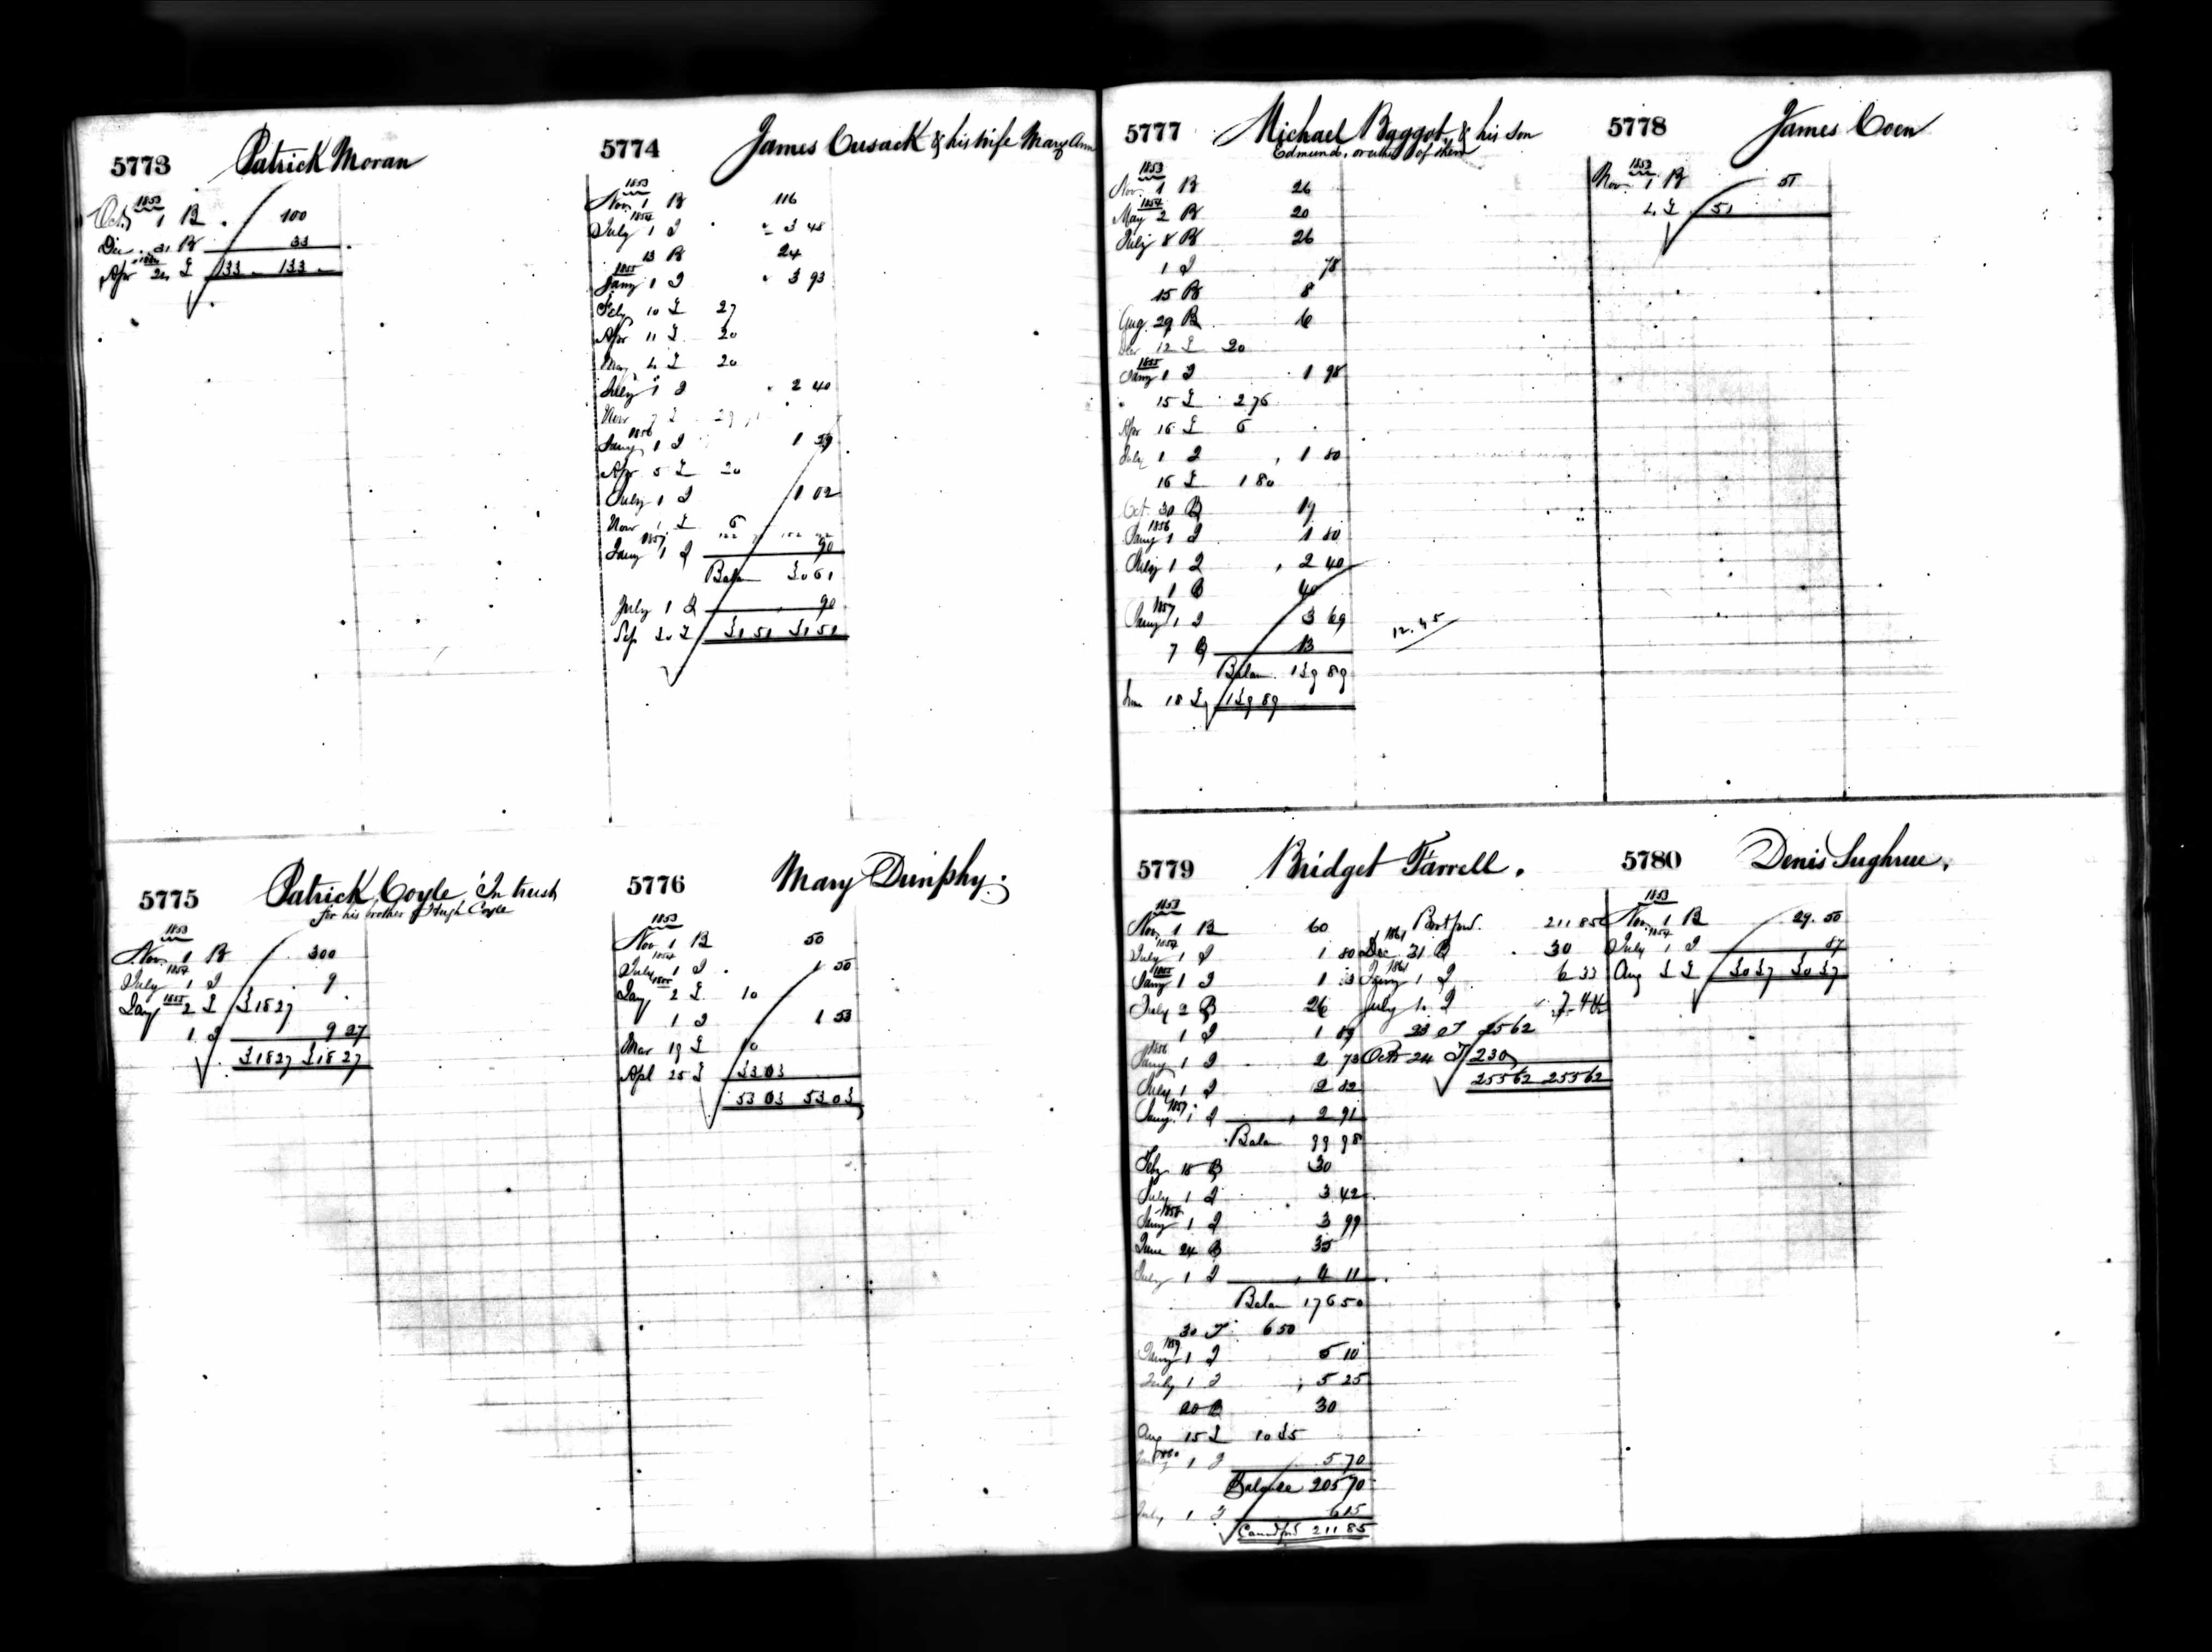 5773 Patrick Moran
1853
Oct 1 B 100
Dec 31 B 33
1854
Apr 24 £ 133 - 133 -
5774 James Cusack & his wife Mary Ann
1853
Nov 1 B 116
1854
July 1 I 3 48
13 B 24
1855
Jany 1 I 3 93
Feby 10 £ 27
Apr 11 £ 20
May 4 £ 20
July 1 I 2 40
Nov 7 £
1856
Jany 1 I 1 59
Apr 5 £ 20
July 1 I 1 02
Nov 1 £ 6
1857
Jany 1 I 90
Balan 3061
July 1 I 90
Sep £ 3151 3151
5775 Patrick Coyle In trust
for his brother Hugh Coyle
1853
Nov 1 B 300
1854
July 1 I 9
1855
Jany 2 £ 31827
1 I 9 27
31827 31827
5776 Mary Dunphy.
1853
Nov 1 B 50
1854
July 1 I 1 50
1855
Jany 2 £ 10
1 I 1 53
Mar 19 £ 10
Apl 25 £ 3303
5303 5303
5777 Michael Baggot & his son
Edmund, or either of them
1853
Nov 1 B 26
1854
May 2 B 20
July 8 B 26
1 I 78
15 B 8
Aug 29 B 6
Dec 12 £ 20
1855
Jany 1 I 1 98
15 £ 2 76
Apr 16 £ 6
July 1 I 1 80
16 £ 1 80
Oct 30 B 19
1856
Jany 1 I 1 80
July 1 I 2 40
1 B 40
1857
Jany 1 I 3 69
12.45
7 B 13
Balan 139 89
June 18 £ 139 89
5778 James Coen
1853
Nov 1 B 51
4 £ 51
5779 Bridget Farrell.
1853
Nov 1 B 60
1854
July 1 I 1 80
1855
Jany 1 I 1 83
July 2 B 26
1 I 1 89
1856
Jany 1 I 2 73
July 1 I 2 82
1857
Jany 1 I 2 91
Balan 99 98
Feby 18 B 30
July 1 I 3 42
1858
Jany 1 I 3 99
June 24 B 35
July 1 I 4 11
Balan 176 50
30 £ 6 50
1859
Jany 1 I 5 10
July 1 I 5 25
20 B 30
Aug 15 £ 10 35
1860
Jany 1 I 5 70
Balance 205 70
July 1 I 6 15
Carrd ford 211 85
Brot ford. 211 85
Dec 31 B 30
1861
Jany 1 I 6 33
July 1 I 7 44
23 £ 25 62
Oct 24 £ 230
255 62 255 62
5780 Denis Sughrue,
1853
Nov 1 B 29. 50
1854
July 1 I 87
Aug 3 £ 30 37 30 37